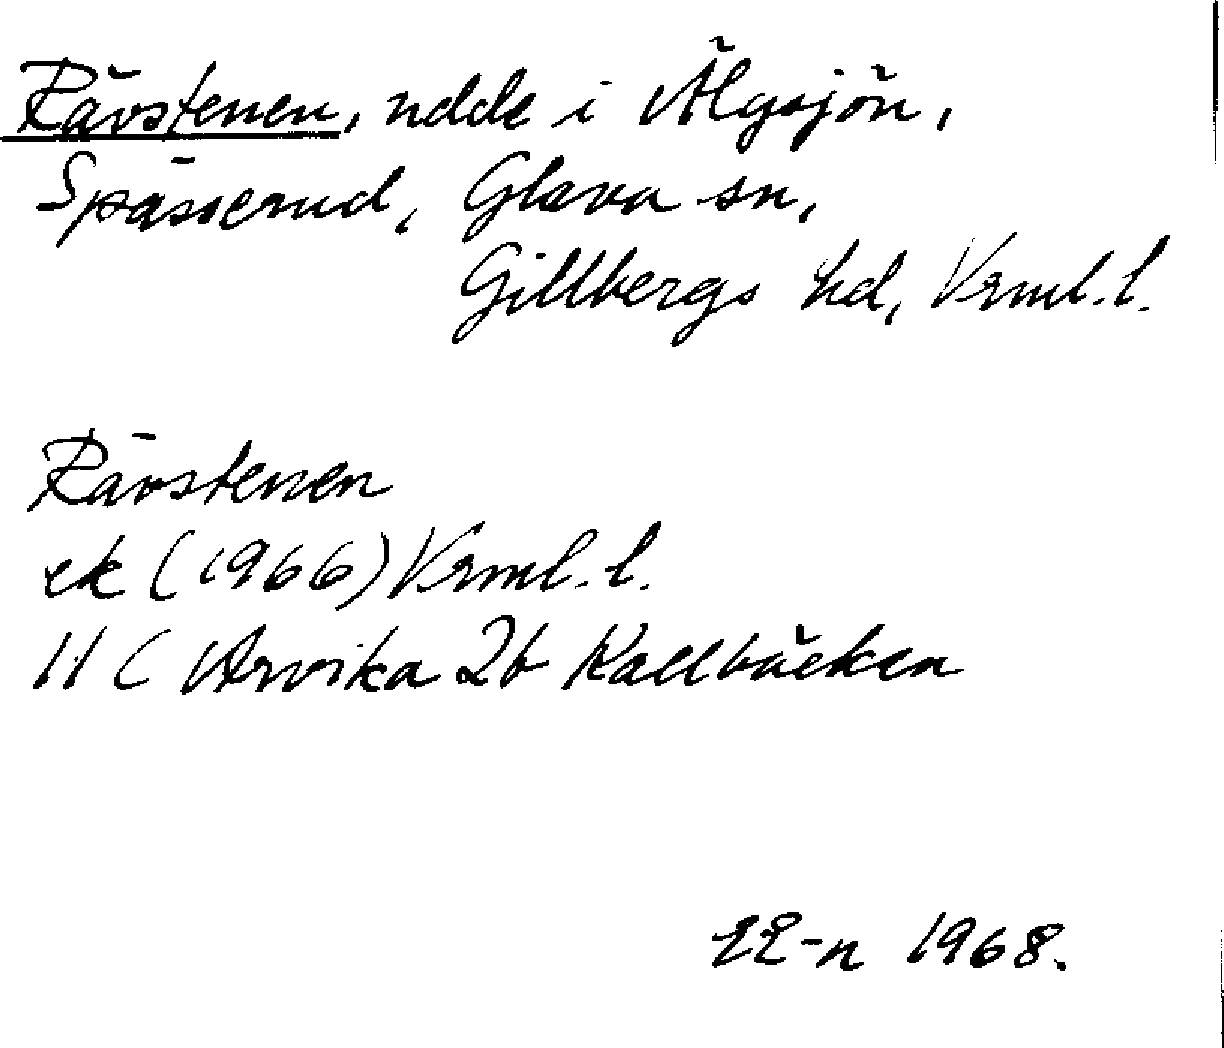 Rävstenen, udde i Älgsjön,
Spässerud, Glava sn,
Gillbergs hd, Vrml. l.
Rävstenen
ek (1966) Vrml. l.
11 C Arvika 2b Kallbäcken
1968.